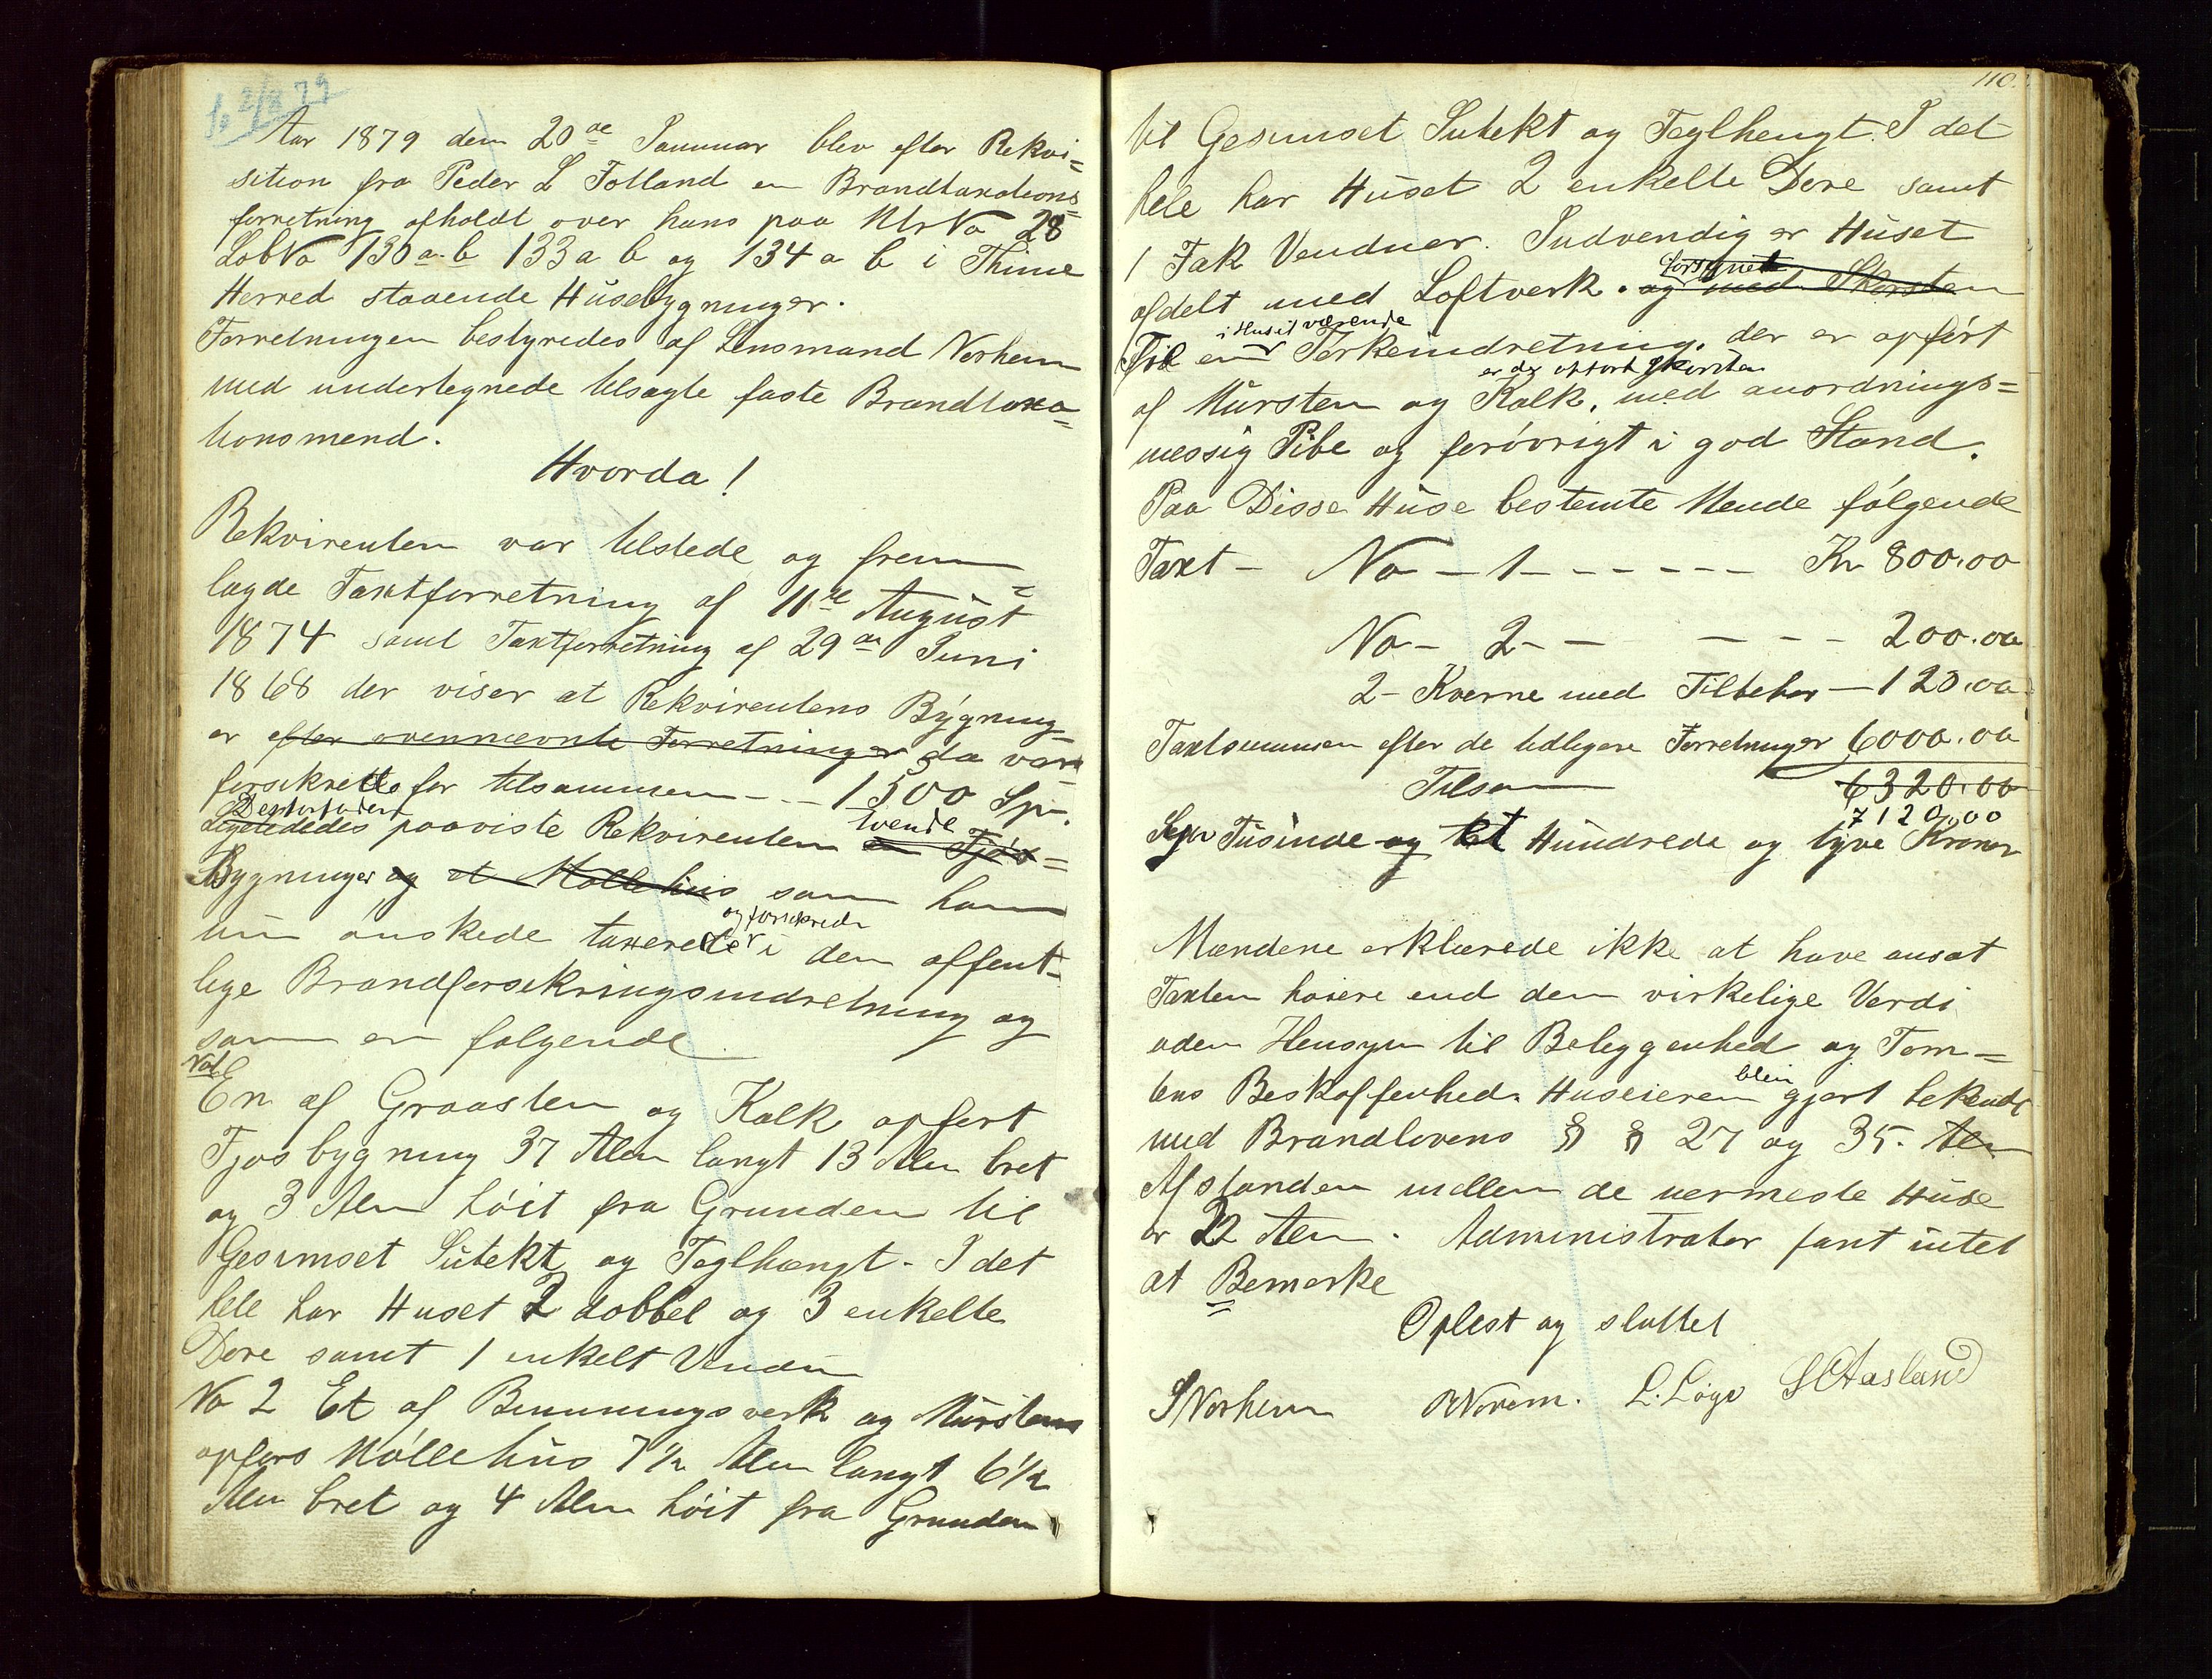 2/8 79
Aar 1879 den 20de Januar blev efter Rekvi=
sition fra Peder L Folland en Brandtaxations=
forretning afholdt over hans paa Mtr No 28
LobNo 130 a. b 133 a b og 134 a b i Thime
Herred staaende Husebygninger.
Forretningen bestyredes af Lensmand Norheim
med undertegnede tilsagte faste Brandtaxa=
tionsmend.
Hvorda!
Rekvirenten var tilstede og frem=
lagde Taxtforretning af 11te August
1874 samt Taxtforretning af 29de Juni
1868 der viser at Rekvirentens Bygning=
er efter ovennævnte Forretninger da var
forsikrede for tilsammen - - - 1500 Spr.
Desforuden
Ligeledes paaviste Rekvirenten tvende en Fjøs=
Bygninger og et Møllehus som han
og forsikrede
nu ønskede taxerede i den offent=
lige Brandforsekringsindretning og
som er folgende
No 1
En af Graasten og Kalk opfert
Fjosbygning 37 Alen langt 13 Alen bret
og 3 Alen høit fra Grunden til
Gesimset Sutekt og Teglhængt - I det
hele har Huset 2 dobbel og 3 enkelte
Dere samt 1 enkelt Vindu
No 2 Et af Binningsverk og Mursten
opfers Møllehus 7 1/2 Alen langt 6 1/2
Alen bret og 4 Alen høit fra Grunden
110.
til Gesimset Sutekt og Teglhengt. I det
hele har Huset 2 enkelte Dere samt
1 Fak Venduer. Indvendig er Huset
forsynet
afdelt med Loftverk. og med Skorsten
i Huset værende
Til en Terkeindretning. der er opført
er der opført Skorsten
af Mursten og Kalk, med anordnings=
messig Pibe og forøvrigt i god Stand.
Paa Disse Huse bestemte Mende følgende
Taxt - No - 1 - - - - - - Kr 800.00
No - 2 - - - - - 200.00
2 - Kverne med Tilbehør - 120.00
Taxtsummen efter de tidligere Forretninger 6000.00
Tilsam 6320.00
7120.00
Syv Tusinde og et Hundrede og tyve Kroner
Mændene erklærede ikke at have ansat
Taxten høiere end den virkelige Verdi
uden Hensyn til Beliggenhed og Tom=
tens Beskaffenhed. Huseieren blev gjort bekendt
med Brandlovens § § 27 og 35. Alen
Afstanden mellem de nermeste Huse
er 22 Alen. Administrator fant intet
at Bemerke
Oplest og sluttet
S Norheim O Norem. L. Løge S O Aasland